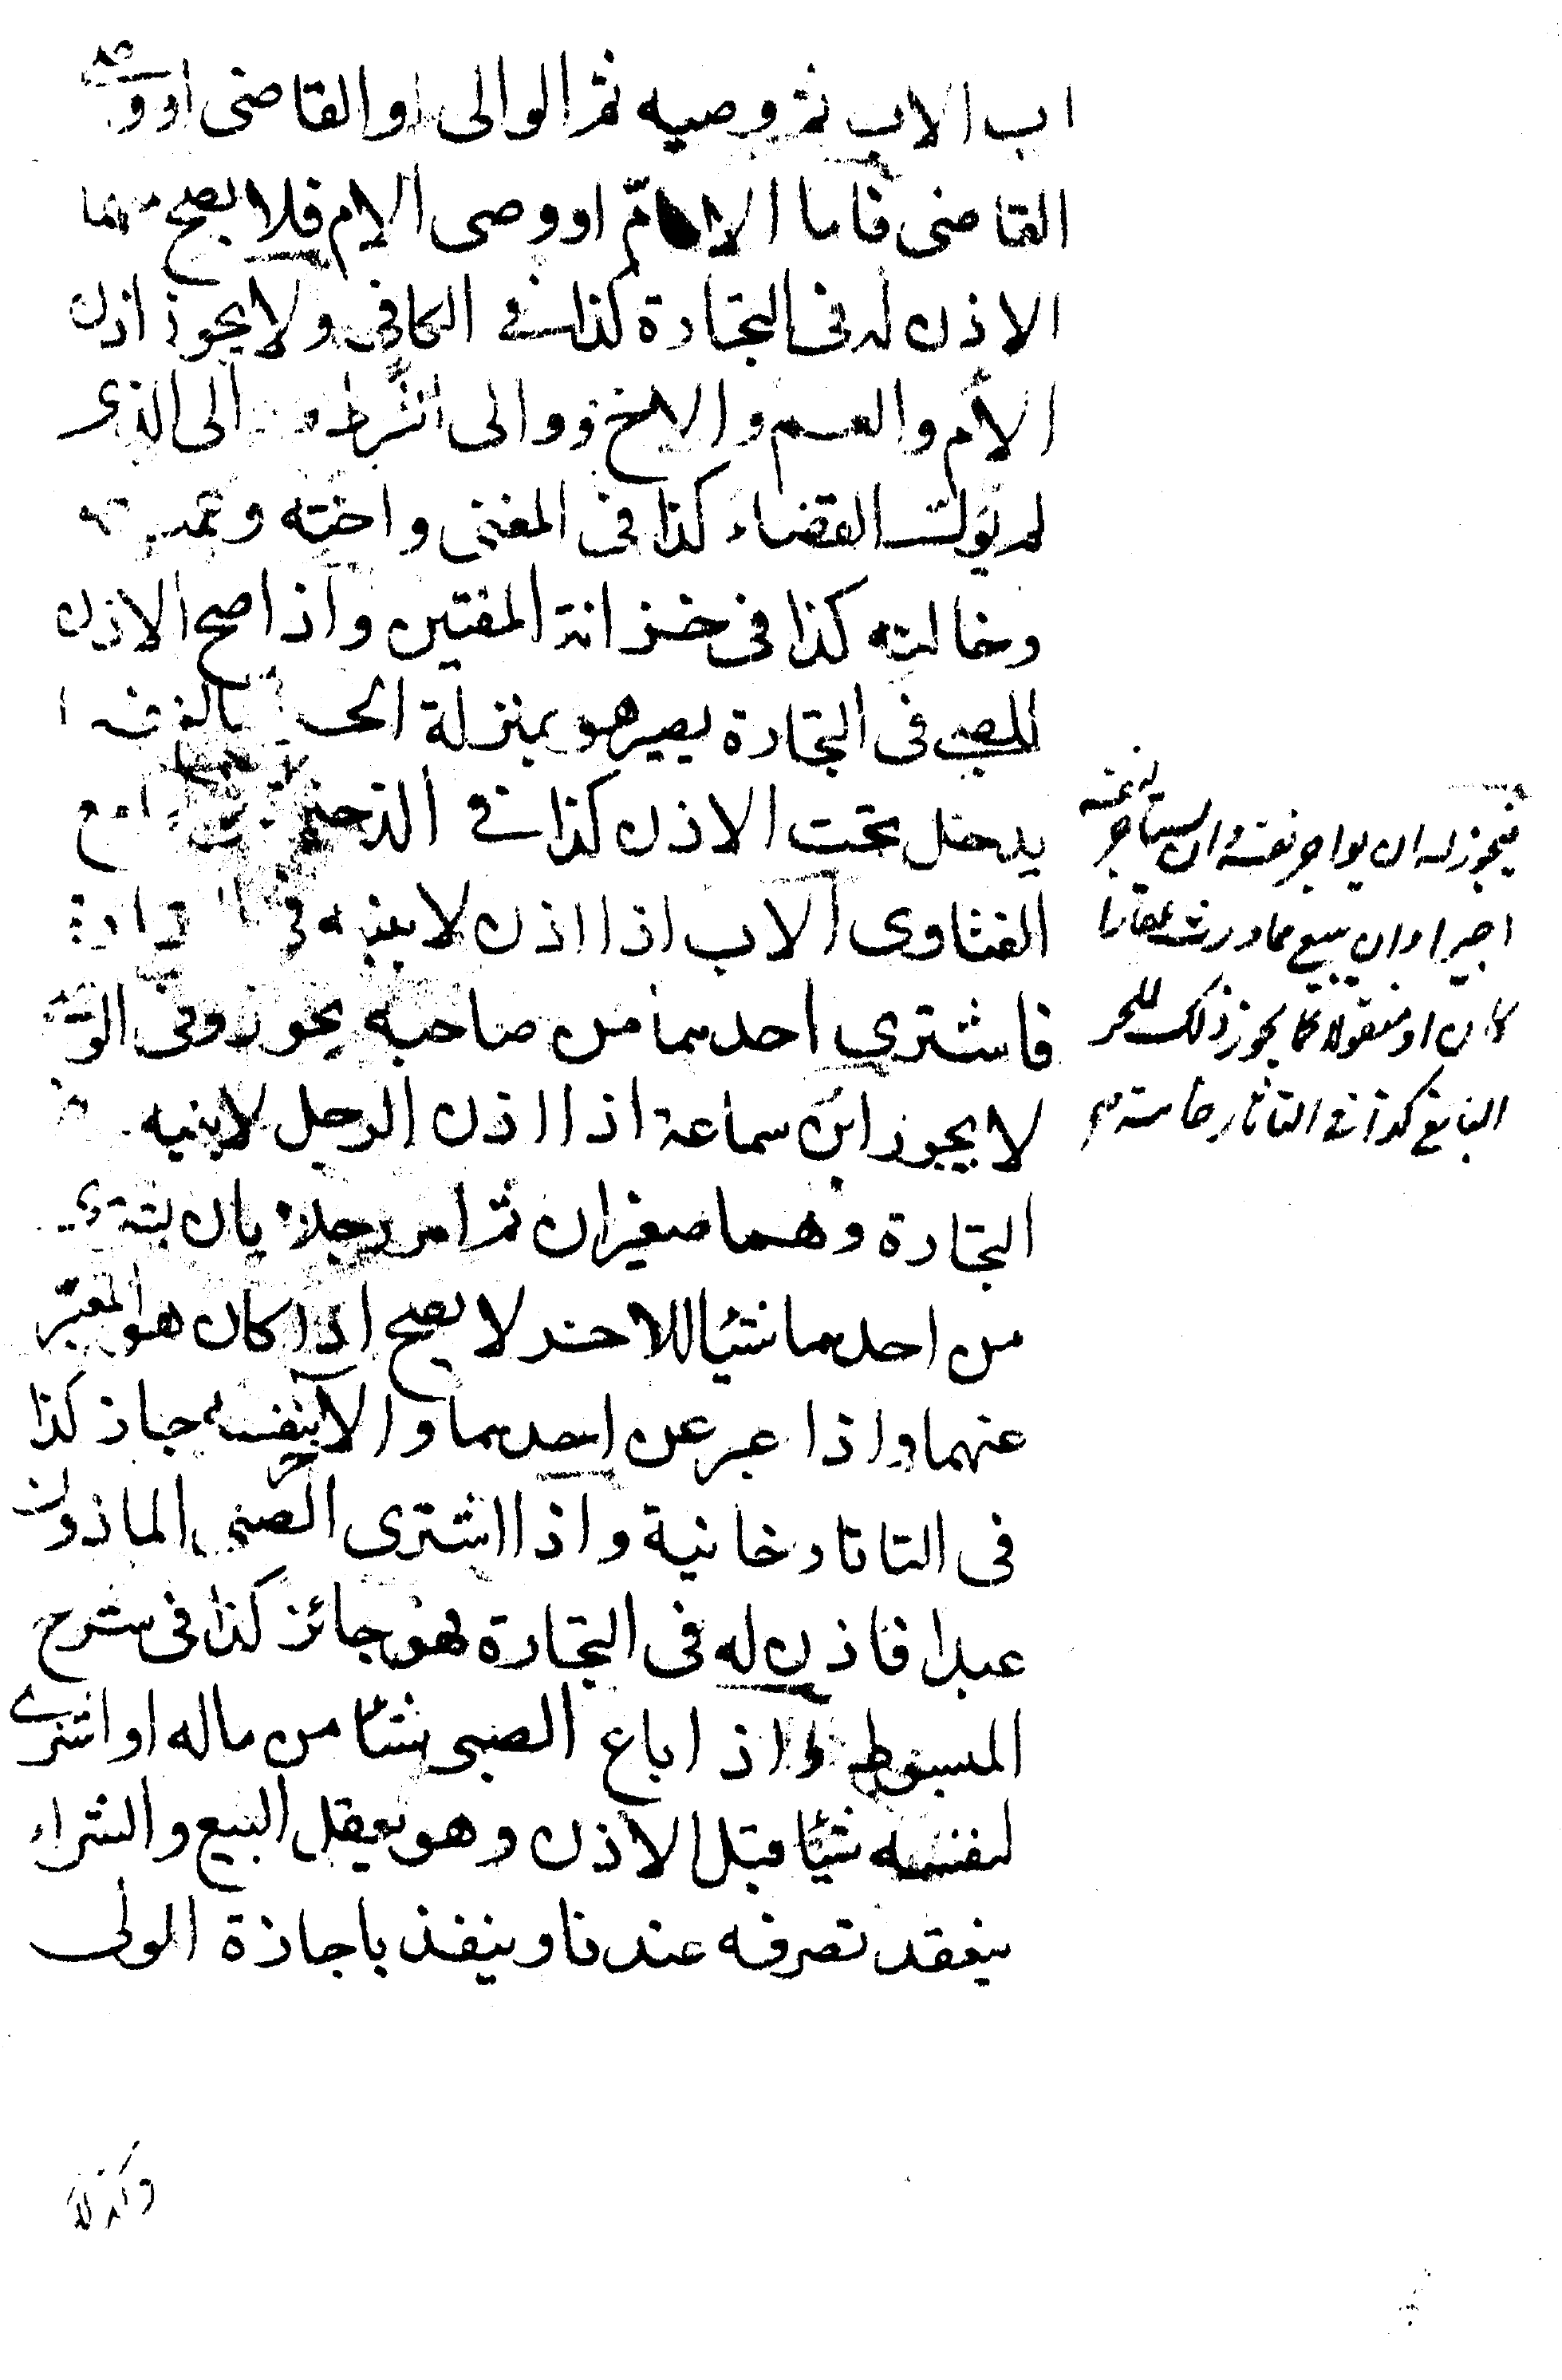 اب الاب ثم وصيه ثم الوالى او القاضى او وصى
القاضى فاما الام او وصى الام فلا يصح منهما
الاذن له فى التجارة كذا فى الكافى ولا يجوز اذن
الأم والعم والاخ ووالى الشرط و الى الذى
لم يول القضاء كذا فى المغنى واخته وعمته
وخالته كذا فى خزانة المفتين واذا صح الاذن
للصبى فى التجارة يصير هو بمنزلة الحر البالغ فيما
يدخل تحت الاذن كذا فى الذخيرة جامع
الفتاوى الاب اذا اذن لابنيه فى التجارة
فاشترى احدهما من صاحبه يجوز وفى الوصى
لا يجوز ابن سماعة اذا اذن الرجل لابنيه فى
التجارة وهما صغيران ثم امر رجلا بان يشترى
من احدهما شيئا للاخر لا يصح اذا كان هو المعبر
عنهما واذا عبر عن احدهما والآخر بنفسه جاز كذا
فى التاتارخانية واذا اشترى الصبى الماذون
عبدا فاذن له فى التجارة فهو جائز كذا فى شرح
المبسوط واذا باع الصبى شيئا من ماله او اشترى
لنفسه شيئا قبل الاذن وهو يعقل البيع والشراء
ينعقد تصرفه عندنا وينفذ باجازة الولى
فيجوز له ان يواجر نفسه وان يستاجر لنفسه
اجيرا وان يبيع مما ورث عقارا
كان او منقولا كما يجوز ذلك للحر
البالغ كذا فى التاتارخانية
وكذلك